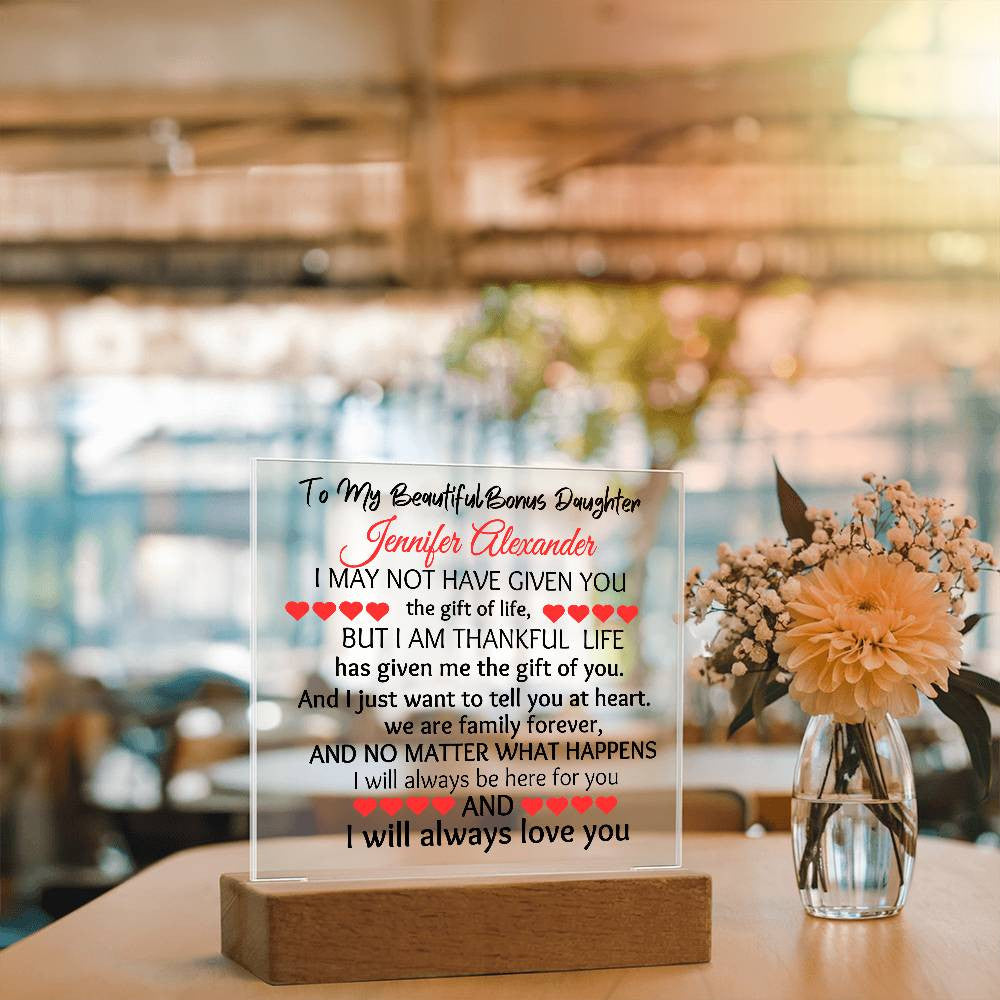 To My Beautiful Bonus Daughter
Jennifer Alexander
I MAY NOT HAVE GIVEN YOU
the gift of life,
BUT I AM THANKFUL LIFE
has given me the gift of you.
And I just want to tell you at heart.
we are family forever,
AND NO MATTER WHAT HAPPENS
I will always be here for you
AND
I will always love you